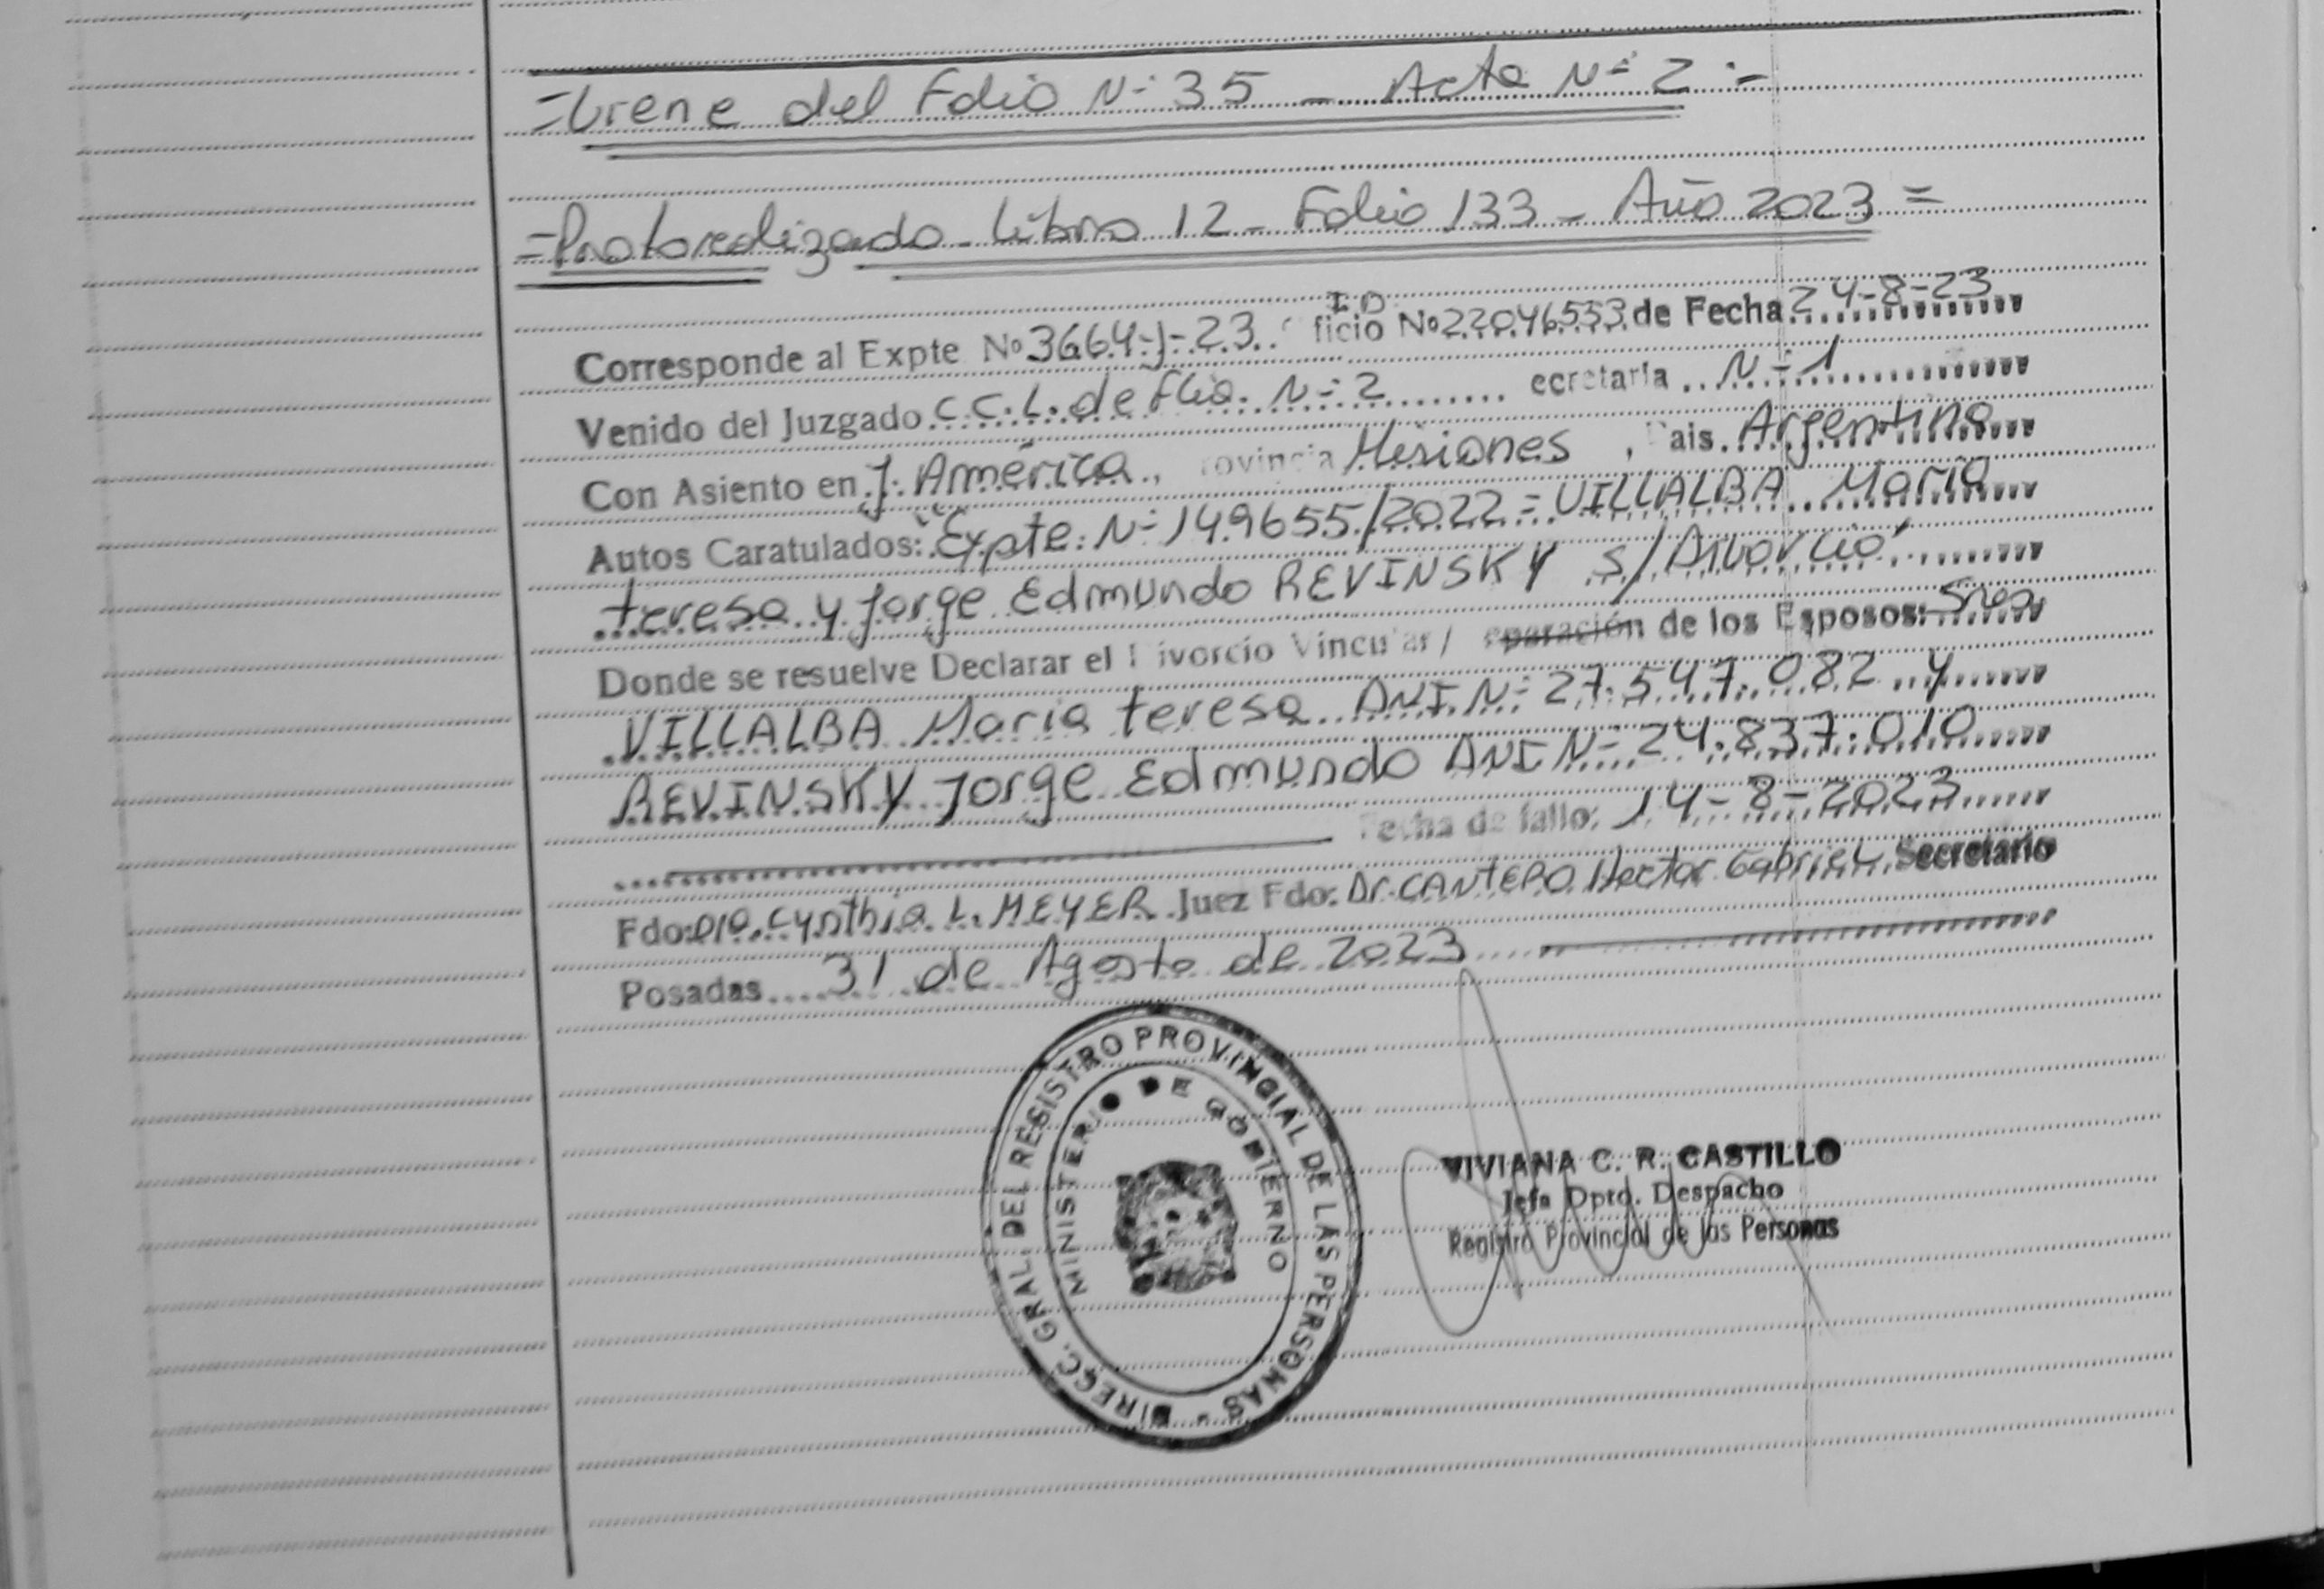 =Viene del Folio N=35 - Acta N=2 :-
=Protocolizado - Libro 12 - Folio 133 - Año 2023 =
Corresponde al Expte Nº 3664-J-23. ID ficio Nº 22046533 de Fecha 24-8-23
Venido del Juzgado C.C.L. de flia. N=2 ecretaria N=1
Con Asiento en J. América, rovincia Misiones, Pais Argentina
Autos Caratulados: "Expte. N=149655/2022 = VILLALBA Maria
teresa y Jorge Edmundo REVINSKY s/Divorcio"
Donde se resuelve Declarar el Divorcio Vincular/ eparación de los Esposos: Sres
VILLALBA Maria teresa DNI N=27.547.082 y
REVINSKY Jorge Edmundo DNI N=24.837.010
Fecha de fallo: 14-8-2023
Fdo: Dra. Cynthia L. MEYER Juez Fdo: Dr. CANTERO Hector Gabriel Secretario
Posadas 31 de Agosto de 2023
DIRECC. GRAL. DEL REGISTRO PROVINCIAL DE LAS PERSONAS -
MINISTERIO DE GOBIERNO
VIVIANA C. R. CASTILLO
Jefa Dpto. Despacho
Registro Provincial de las Personas